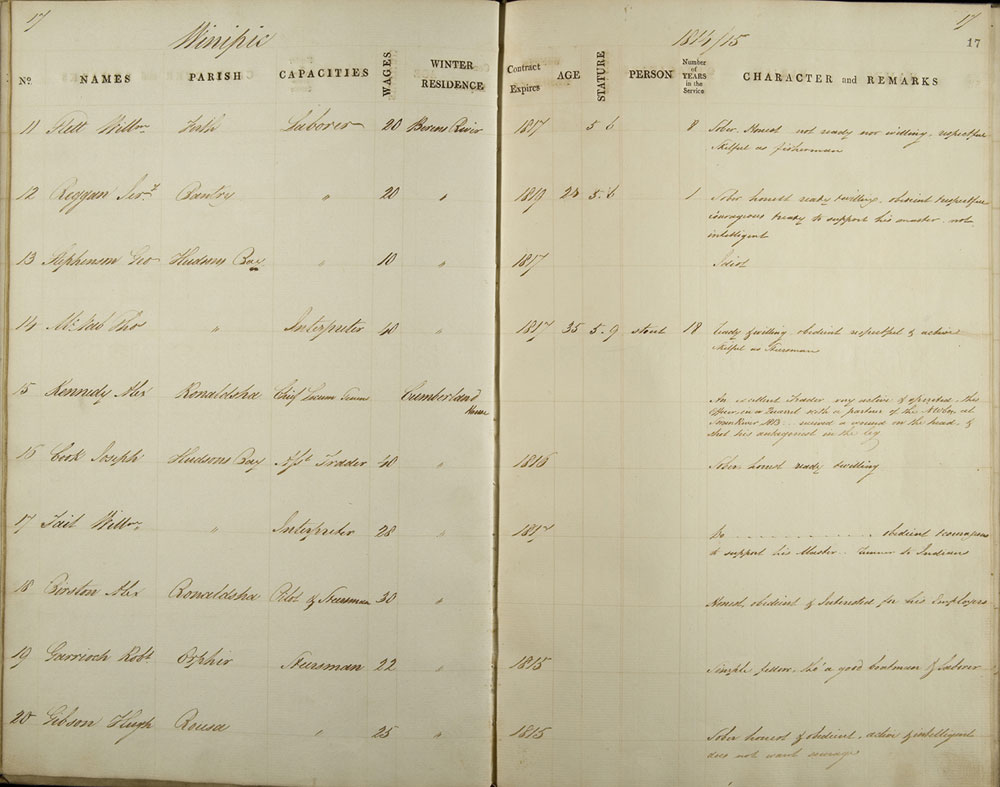 17
Winipic
1814/15
17
17
No. NAMES PARISH CAPACITIES WAGES WINTER RESIDENCE Contract Expires AGE STATURE PERSON Number of YEARS in the Service CHARACTER and REMARKS
11 Flett Willm Firth Laborer 20 Berens River 1817 5.6 8 Sober Honest not ready nor willing, respectful
skilful as fisherman
12 Reggan Jer. Bantry " 20 " 1819 5.6 1 Sober honest ready & willing, obedient & respectful
courageous & ready to support his master not
intelligent
13 Stephenson Geo Hudsons Bay " 10 " 1817 Idiot
14 Mc Nab Thos " Interpreter 40 " 1817 35 5.9 stout 18 ready & willing obedient respectful & active
skilful as Steersman
15 Kennedy Alex Ronaldsha Chief Locum Tenens Cumberland House An excellent Trader very active & spirited this
Officer in a Quarrel with a partner of the NWCo. at
received a wound in the head &
shot his antagonist in the leg
16 Cook Joseph Hudsons Bay Asst Trader 40 " 1816 Sober honest ready & willing
17 Tait Willm " Interpreter 28 " 1817 Do . . . . . . . . . . . . . . obedient & courageous
to support his Master to Indians
18 Birston Alex Ronaldsha Pilot & Steersman 30 " Honest, obedient & Interested for his Employers
19 Garrioch Robt Orphir Steersman 22 " 1815 Simple fellow, tho' a good boatman & Laborer
20 Gibson Hugh Rousa " 25 " 1815 Sober honest & obedient, active & intelligent
does not want courage